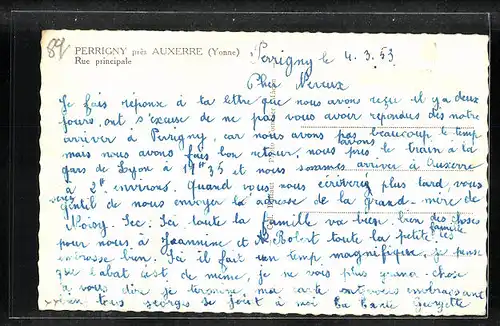 89
PERRIGNY près AUXERRE (Yonne)
Rue principale
Perrigny le 4.3.53
Cher Neveux
Je fais réponse à ta lettre que nous avons reçu il y a deux
jours, ont s'excuse de ne pas vous avoir répondus dès notre
arriver à Perrigny, car nous avons pas beaucoup le temp
mais nous avons fais bon retour, nous avons pris le train à la
gare de Lyon à 17h35 et nous sommes arriver à Auxerre
à 2h environs. Quand vous nous écriverez plus tard, vous
serez gentil de nous envoyer la adresse de la grand-mère de
Noisy. Sec: Ici toute la famille va bien, bien des choses
pour nous à Jeannine et R. Robert toute la petite famille
embrasse bien. Ici il fait un temp magnifique, je pense
que là bat c'est de même, je ne vous plus grand-chose
à vous dire je termine ma carte en vous embrassant
bien tous Georges se joint à moi ta tante Georgette